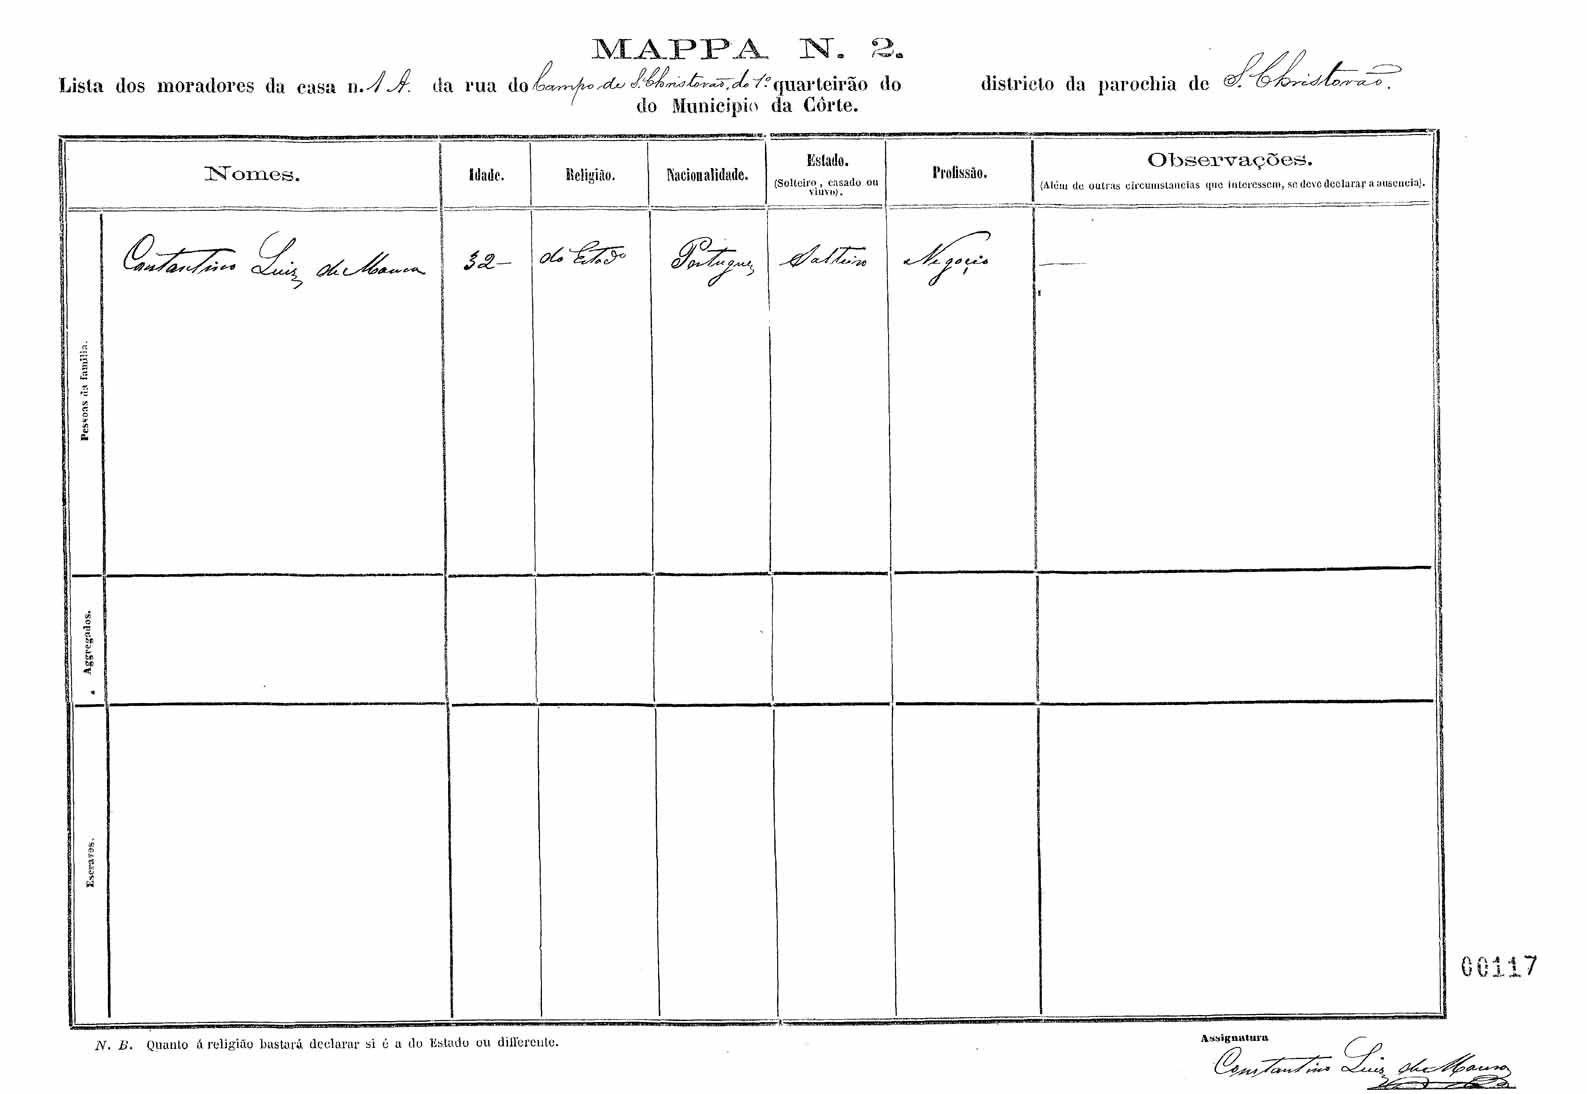 MAPPA N. 2.
Lista dos moradores da casa n. 1 A. da rua do Campo de S. Christovão, do 1.º quarteirão do districto da parochia de S. Christovão.
do Municipio da Côrte.
Nomes. Idade. Religião. Nacionalidade. Estado. (Solteiro, casado ou viuvo). Profissão. Observações. (Além de outras circumstancias que interessem, se deve declarar a ausencia).
Pessoas da familia.
Constantino Luiz de Moura 32 — do Estado Portuguez Solteiro Negocio —
Aggregados.
Escravos.
00117
N. B. Quanto á religião bastará declarar si é a do Estado ou differente.
Assignatura
Constantino Luiz de Moura